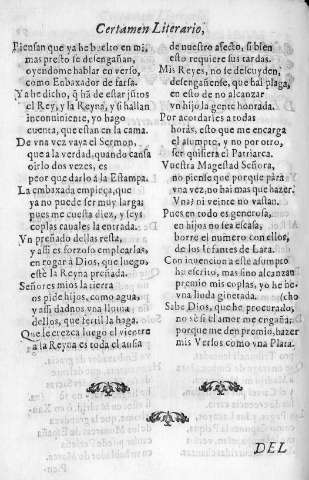 Certamen Literario,
Piensan que ya he buelto en mi,
mas presto se desengañan,
oyendome hablar en verso,
como Enbaxador de farsa.
Ya he dicho, q̃ hã de estar jũtos
el Rey, y la Reyna, y si hallan
inconuiniente, yo hago
cuenta, que estan en la cama.
De vna vez vaya el Sermon,
que a la verdad, quando cansa
oirlo dos vezes, es
peor que darlo à la Estampa.
La embaxada empieça, que
ya no puede ser muy larga,
pues me cuesta diez, y seys
coplas cauales la entrada.
Vn preñado dellas resta,
y assi es forzoso emplearlas,
en rogar à Dios, que luego,
estè la Reyna preñada.
Señores mios la tierra
os pide hijos, como agua,
y assi dadnos vna lluuia
dellos, que fertil la haga.
Que le crezca luego el vientre
à la Reyna es toda el ausia
de nuestro afecto, si bien
esto requiere sus tardas.
Mis Reyes, no se descuyden,
desengañense, que hai plaga,
en esto de no alcanzar
vn hijo la gente honrada.
Por acordarles a todas
horas, esto que me encarga
el asumpto, y no por otro,
ser quisiera el Patriarca.
Vuestra Magestad Señora,
no piense que porque pàra
vna vez, no hai mas que hazer,
Vnas ni veinte no vastan.
Pues en todo es generosa,
en hijos no sea escasa,
borre el numero con ellos,
de los Infantes de Lara.
Con inuencion a este asumpto
he escrito, mas sino alcanzan
premio mis coplas, yo he he-
vna linda ginetada. (cho
Sabe Dios, que he procurado,
no sè si el amor me engaña,
porque me den premio, hazer
mis Versos como vna Plata.
DEL